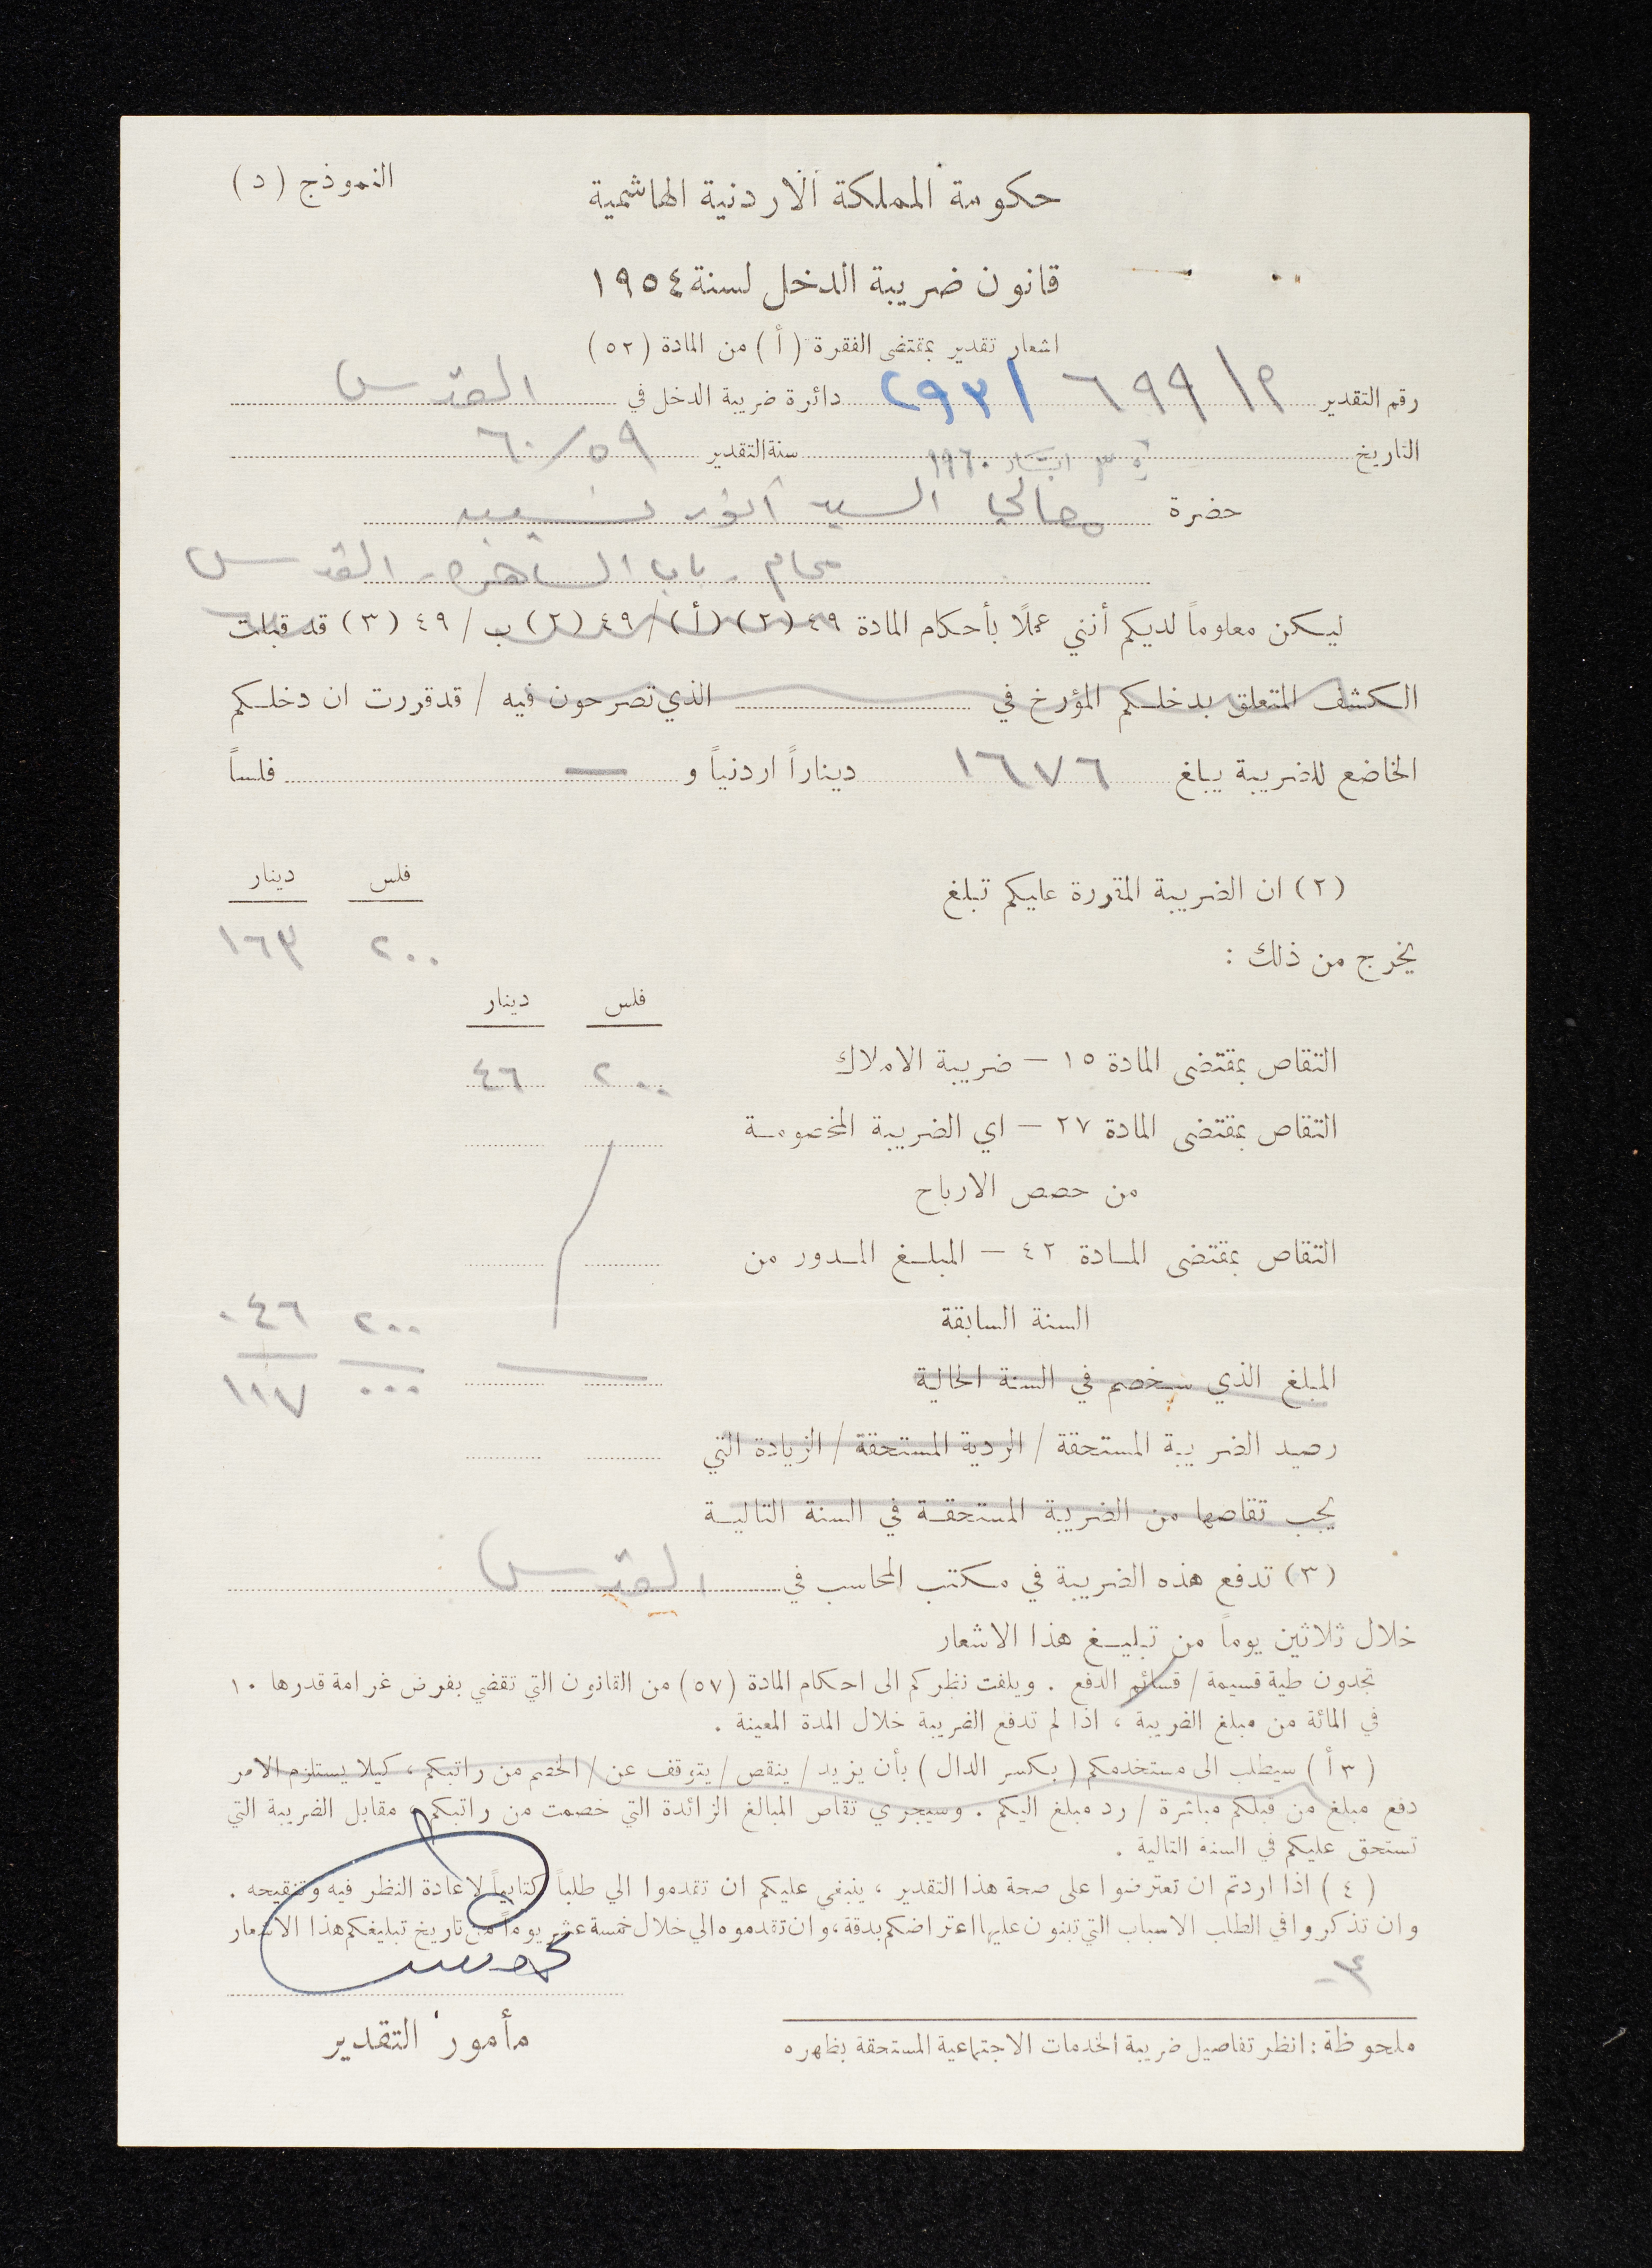 النموذج (د)
حكومة المملكة الاردنية الهاشمية
قانون ضريبة الدخل لسنة ١٩٥٤
اشعار تقدير بمقتضى الفقرة (أ) من المادة (٥٢)
رقم التقدير م/٦٩٩ /٢٩٣ دائرة ضريبة الدخل في القدس
التاريخ ايار ١٩٦٠ سنة التقدير ٦٠/٥٩
حضرة معالي السيد أنور نسيبه
محام - باب الساهره - القدس
ليكن معلوماً لديكم أنني عملاً بأحكام المادة ٤٩ (٢) (أ) / ٤٩ (٢) ب / ٤٩ (٣) قد قبلت
الكشف المتعلق بدخلكم المؤرخ في الذي تصرحون فيه / قد قررت ان دخلكم
الخاضع للضريبة يبلغ ١٦٧٦ ديناراً اردنياً و — فلساً
(٢) ان الضريبة المقررة عليكم تبلغ
فلس دينار
٢٠٠ ١٦٣
يخرج من ذلك :
فلس دينار
التقاص بمقتضى المادة ١٥ – ضريبة الاملاك ٢٠٠ ٤٦
التقاص بمقتضى المادة ٢٧ – اي الضريبة المخصومة
من حصص الارباح
التقاص بمقتضى المادة ٤٢ – المبلغ المدور من
السنة السابقة ٢٠٠ ٠٤٦
المبلغ الذي سيخصم في السنة الحالية ٠٠٠ ١١٧
رصيد الضريبة المستحقة / الردية المستحقة / الزيادة التي
يجب تقاصها من الضريبة المستحقة في السنة التالية
(٣) تدفع هذه الضريبة في مكتب المحاسب في القدس
خلال ثلاثين يوماً من تبليغ هذا الاشعار
تجدون طية قسيمة / قسائم الدفع . ويلفت نظركم الى احكام المادة (٥٧) من القانون التي تقضي بفرض غرامة قدرها ١٠
في المائة من مبلغ الضريبة ، اذا لم تدفع الضريبة خلال المدة المعينة .
(٣ أ) سيطلب الى مستخدمكم (بكسر الدال) بأن يزيد / ينقص / يتوقف عن / الخصم من راتبكم ، كيلا يستلزم الامر
دفع مبلغ من قبلكم مباشرة / رد مبلغ اليكم . وسيجري تقاص المبالغ الزائدة التي خصمت من راتبكم ، مقابل الضريبة التي
تستحق عليكم في السنة التالية .
(٤) اذا اردتم ان تعترضوا على صحة هذا التقدير ، ينبغي عليكم ان تقدموا الي طلباً كتابياً لاعادة النظر فيه وتنقيحه .
وان تذكروا في الطلب الاسباب التي تبنون عليها اعتراضكم بدقة، وان تقدموه الي خلال خمسة عشر يوماً من تاريخ تبليغكم هذا الاشعار
مأمور التقدير
ملحوظة : انظر تفاصيل ضريبة الخدمات الاجتماعية المستحقة بظهره